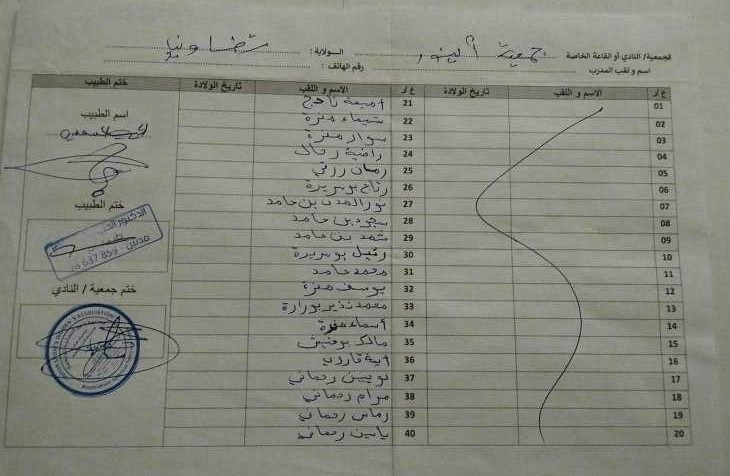 لجمعية/ النادي أو القاعة الخاصة : جمعية النور الولاية : تطاوين
اسم و لقب المدرب : رقم الهاتف :
ع/ر الاسم و اللقب تاريخ الولادة ع/ر الاسم و اللقب تاريخ الولادة ختم الطبيب
01 21 أميمة ناجح
02 22 شيماء منزة
اسم الطبيب
03 23 سوار منزة
04 24 راضية رحال
05 25 رمان رزقي
06 26 رتاج بوسريرة
ختم الطبيب
07 27 نور الهدى بن حامد
08 28 سجود بن حامد
09 29 شهد بن حامد
10 30 رتيل بوسريرة
11 31 محمد حامد
ختم جمعية / النادي
12 32 يوسف منزة
13 33 محمد نذير بورارة
14 34 أسماء منزة
15 35 مالك
16 36 آية
17 37 رحماني
18 38 مرام رحماني
19 39 رماس رحماني
20 40 ياسين رحماني
الدكتور
مدنين
637 853